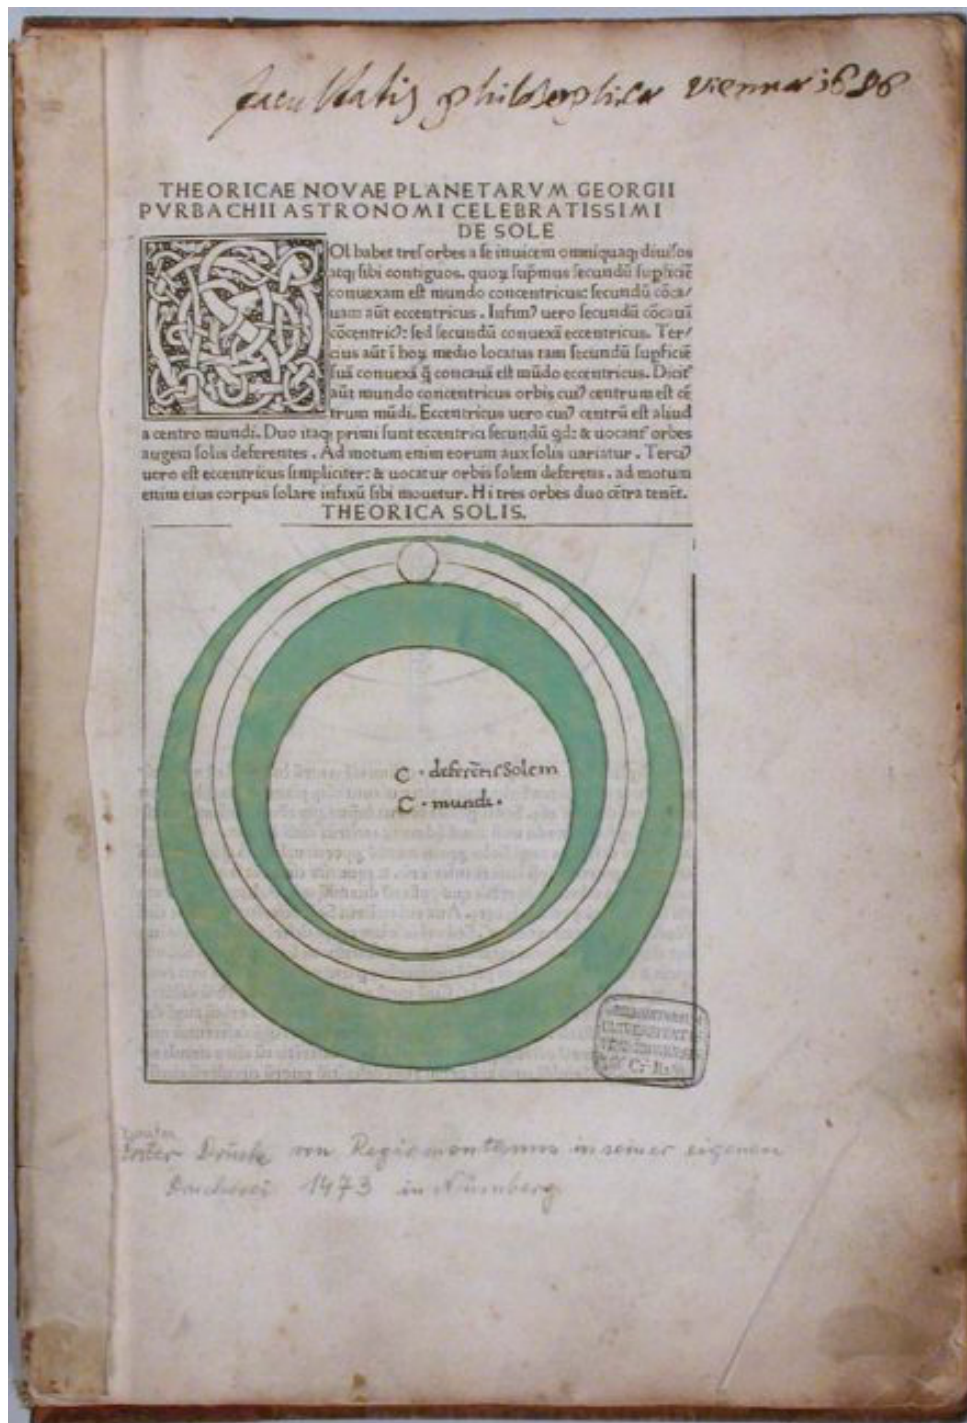 facultatis philosophicae Viennae 1686
THEORICAE NOVAE PLANETARVM GEORGII
PVRBACHII ASTRONOMI CELEBRATISSIMI
DE SOLE
Ol habet treſ orbes a ſe inuicem omniquaqꝫ diuiſos
atqꝫ ſibi contiguos. quoꝝ ſup̄mus ſecundū ſupficiē
conuexam eſt mundo concentricus: ſecundū cōca/
uam aūt eccentricus. Infimꝰ uero ſecundū cōcauā
cōcentricꝰ: ſed ſecundū conuexā eccentricus. Ter/
cius aūt ī hoꝝ medio locatus tam ſecundū ſupficiē
ſuā conuexā q̄ concauā eſt mūdo eccentricus. Dicit᷑
aūt mundo concentricus orbis cuiꝰ centrum eſt cē
trum mūdi. Eccentricus uero cuiꝰ centrū eſt aliud
a centro mundi. Duo itaqꝫ primi ſunt eccentrici ſecundū qd: & uocant᷑ orbes
augem ſolis deferentes. Ad motum enim eorum aux ſolis uariatur. Terciꝰ
uero eſt eccentricus ſimpliciter: & uocatur orbis ſolem deferens. ad motum
enim eius corpus ſolare infixū ſibi mouetur. Hi tres orbes duo cētra tenēt.
THEORICA SOLIS.
C · deferētis Solem
C · mundi ·
Erster Druck von Regiomontanus in seiner eigenen
Druckerei 1473 in Nürnberg